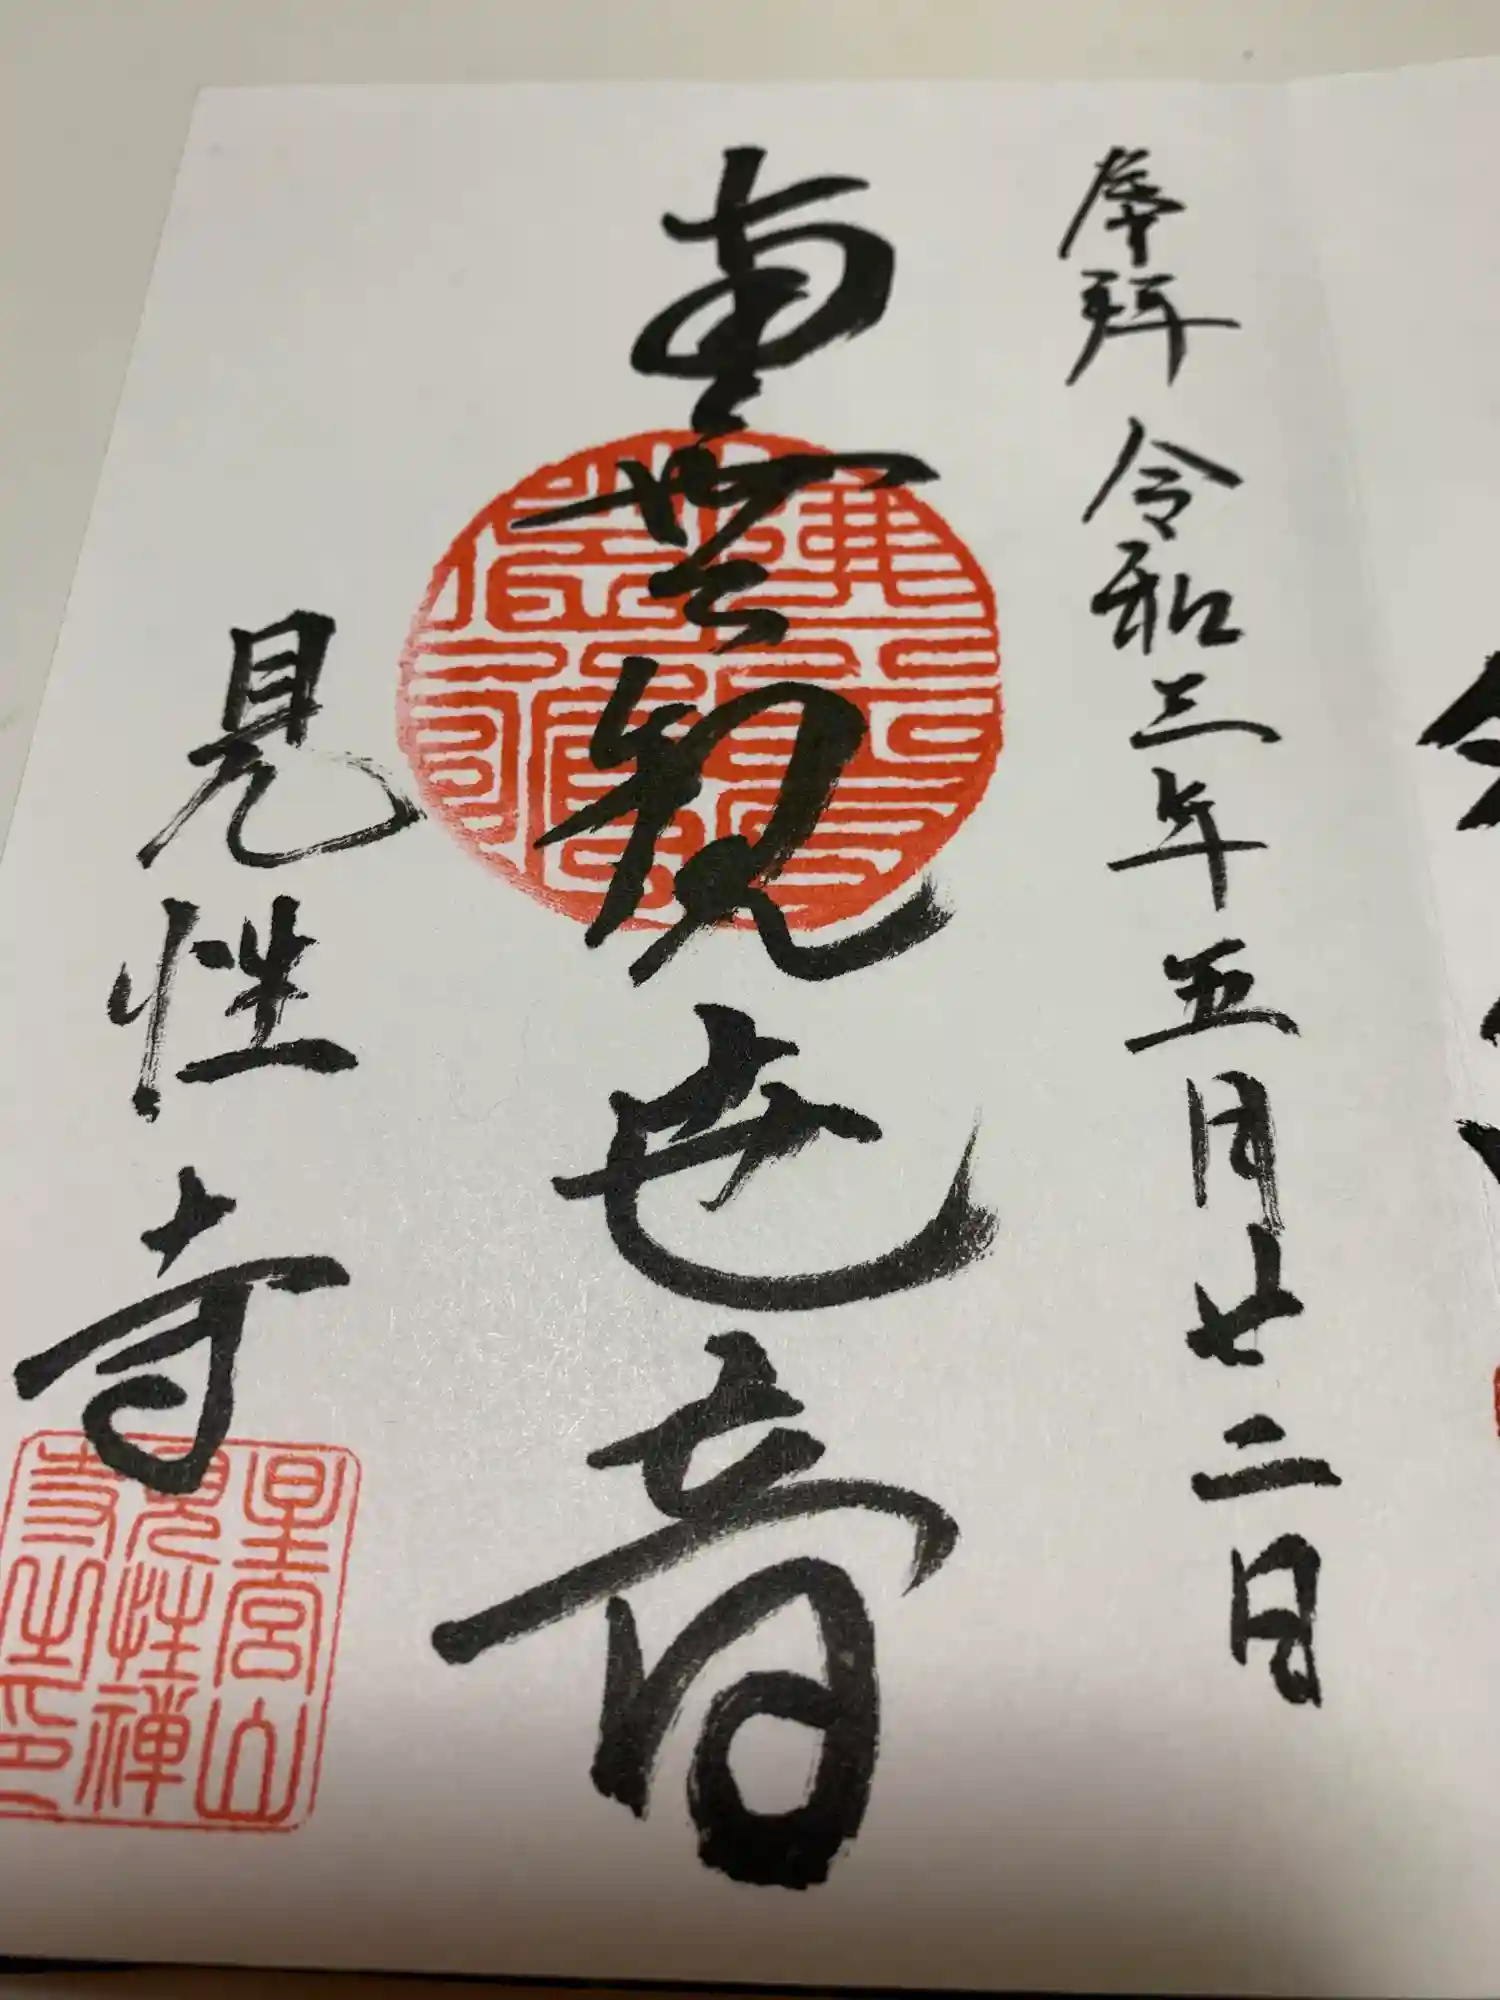 奉拜 令和三年五月廿二日
南無観世音
見性寺
星宮山
見性禅
寺之印